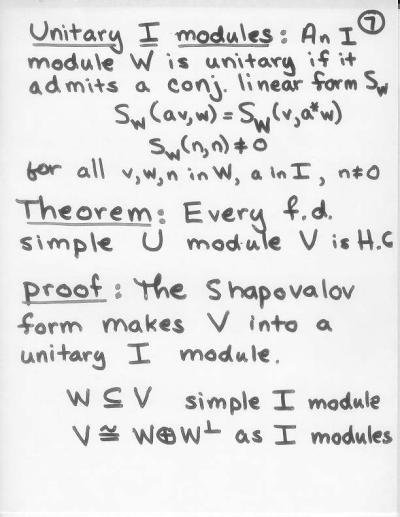 Unitary I modules: An I ⑦
module W is unitary if it
admits a conj. linear form S_W
S_W(av,w) = S_W(v,a*w)
S_W(n,n) ≠ 0
for all v,w,n in W, a in I, n≠0
Theorem: Every f.d.
simple U module V is H.C
proof: The Shapovalov
form makes V into a
unitary I module.
W ⊆ V simple I module
V ≅ W⊕W^⊥ as I modules